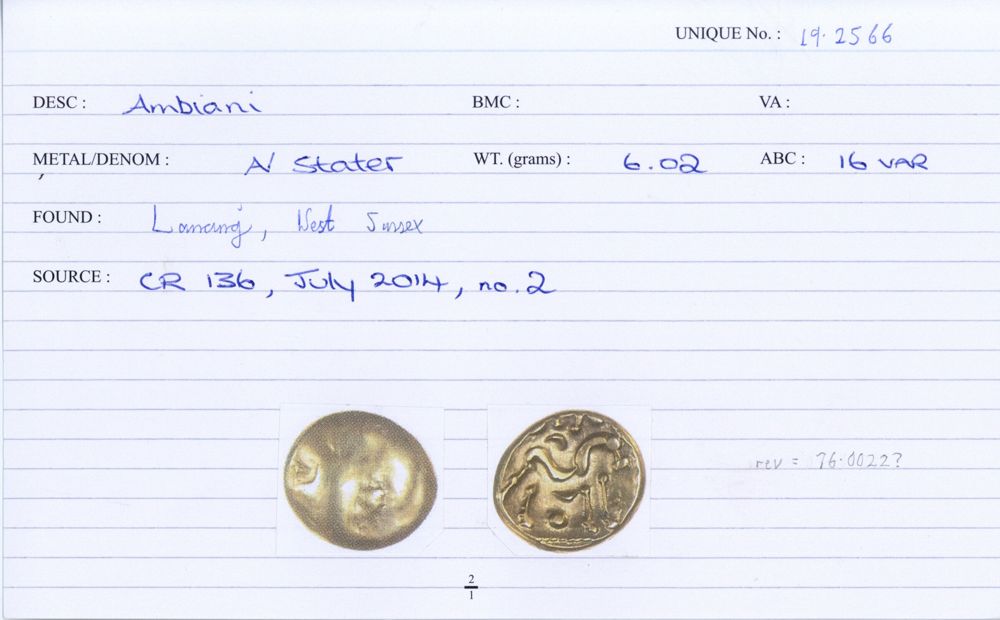 UNIQUE No. : 19.2566
DESC : Ambiani BMC : VA :
METAL/DENOM : A/ Stater WT. (grams) : 6.02 ABC : 16 VAR
FOUND : Lancing, West Sussex
SOURCE : CR 136, July 2014, no. 2
rev = 76.0022?
2
1